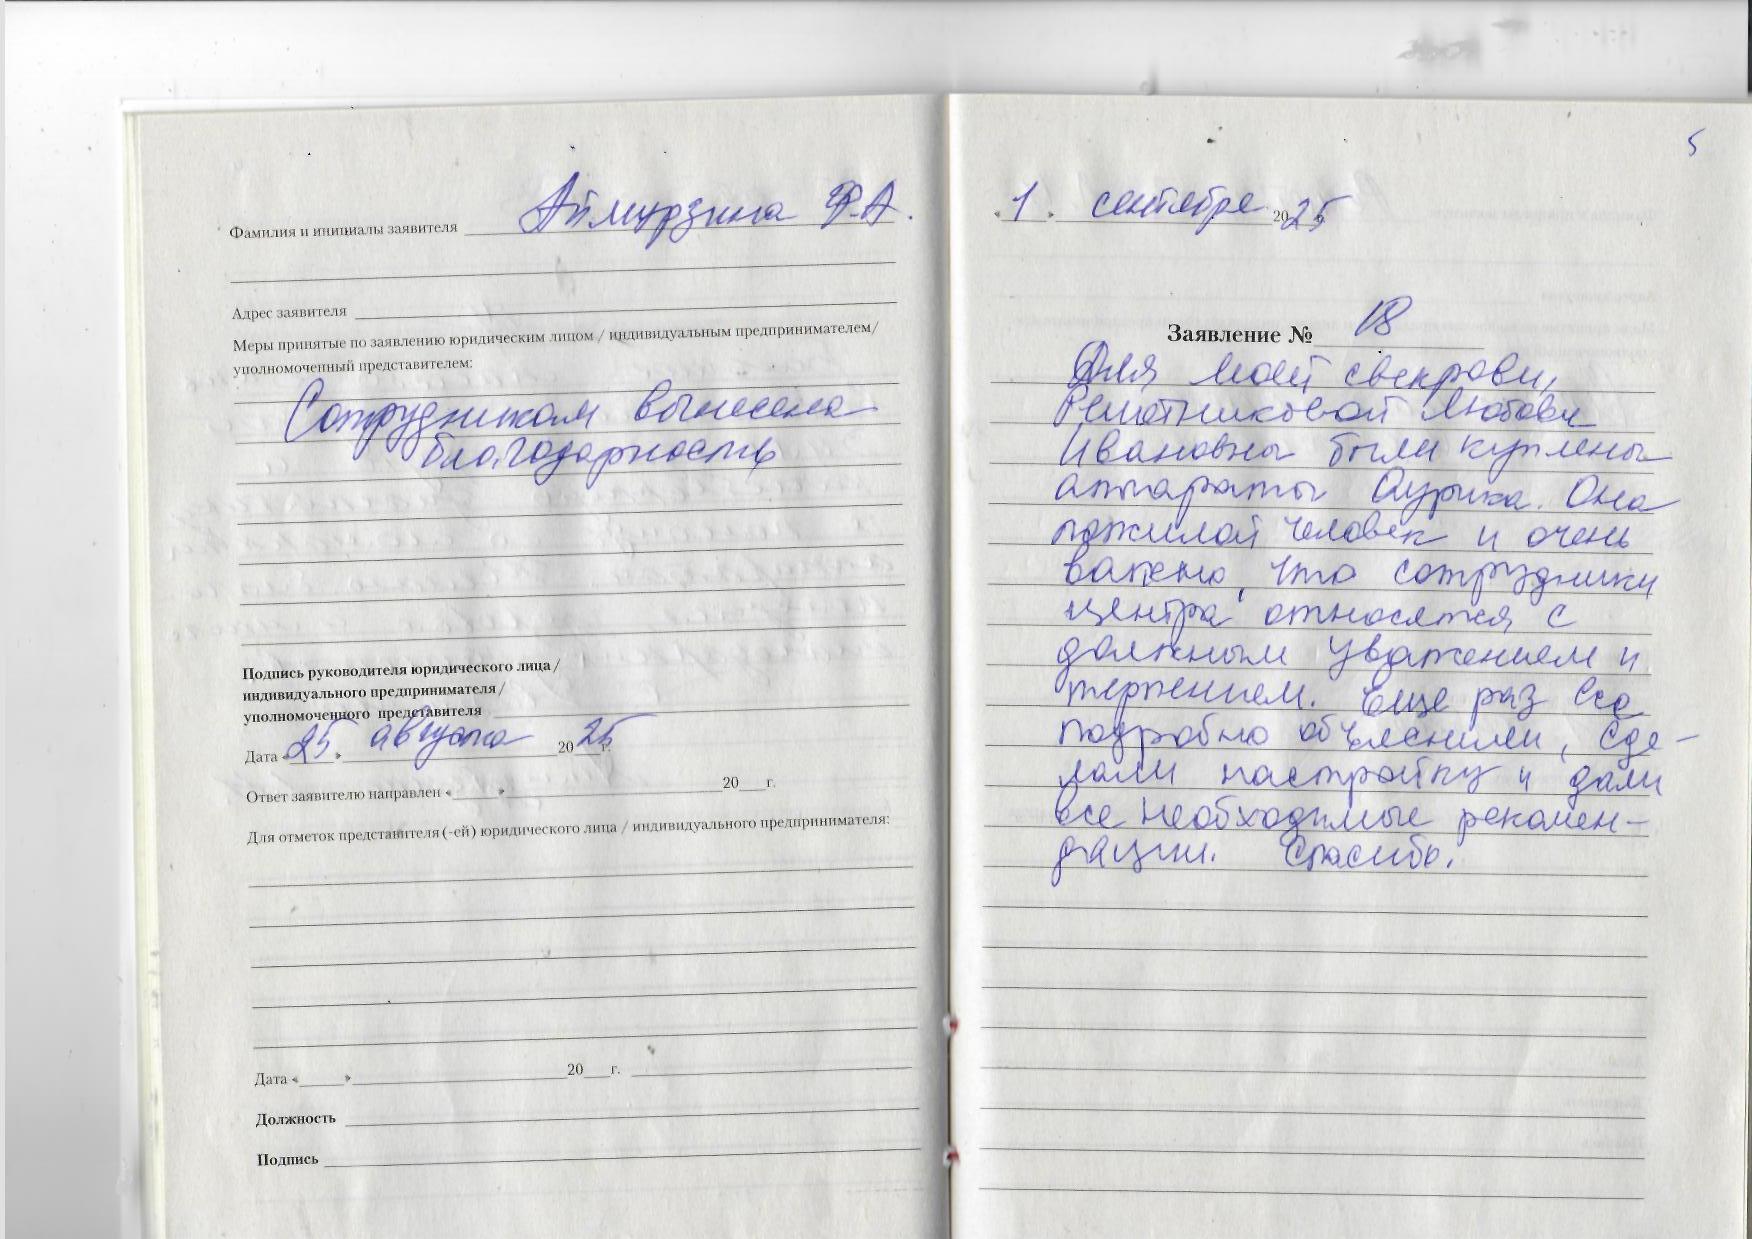 Фамилия и инициалы заявителя Аймурзина Ф.А.
Адрес заявителя
Меры принятые по заявлению юридическим лицом / индивидуальным предпринимателем/
уполномоченный представителем:
Сотрудникам вынесена
благодарность
Подпись руководителя юридического лица /
индивидуального предпринимателя /
уполномоченного представителя
Дата «25» августа 2025 г.
Ответ заявителю направлен « » 20 г.
Для отметок представителя (-ей) юридического лица / индивидуального предпринимателя:
Дата « » 20 г.
Должность
Подпись
5
«1» сентября 2025
Заявление № 18
Для моей свекрови,
Решотниковой Любови
Ивановны были куплены
аппараты Аурика. Она
пожилой человек и очень
важно, что сотрудники
центра относятся с
должным уважением и
терпением. Еще раз все
подробно объяснили, сде-
лали настройку и дали
все необходимые рекомен-
дации. Спасибо.